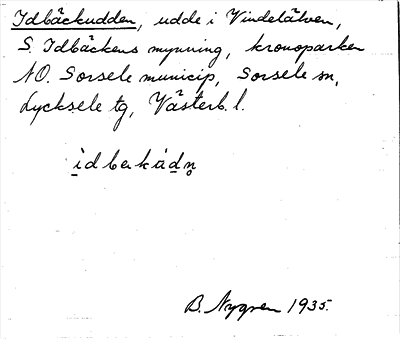 Idbäckudden, udde i Vindelälven,
S. Idbäckens mynning, kronoparken
NO. Sorsele municip, Sorsele sn,
Lycksele tg, Västerb. l.
B. Nygren 1935.